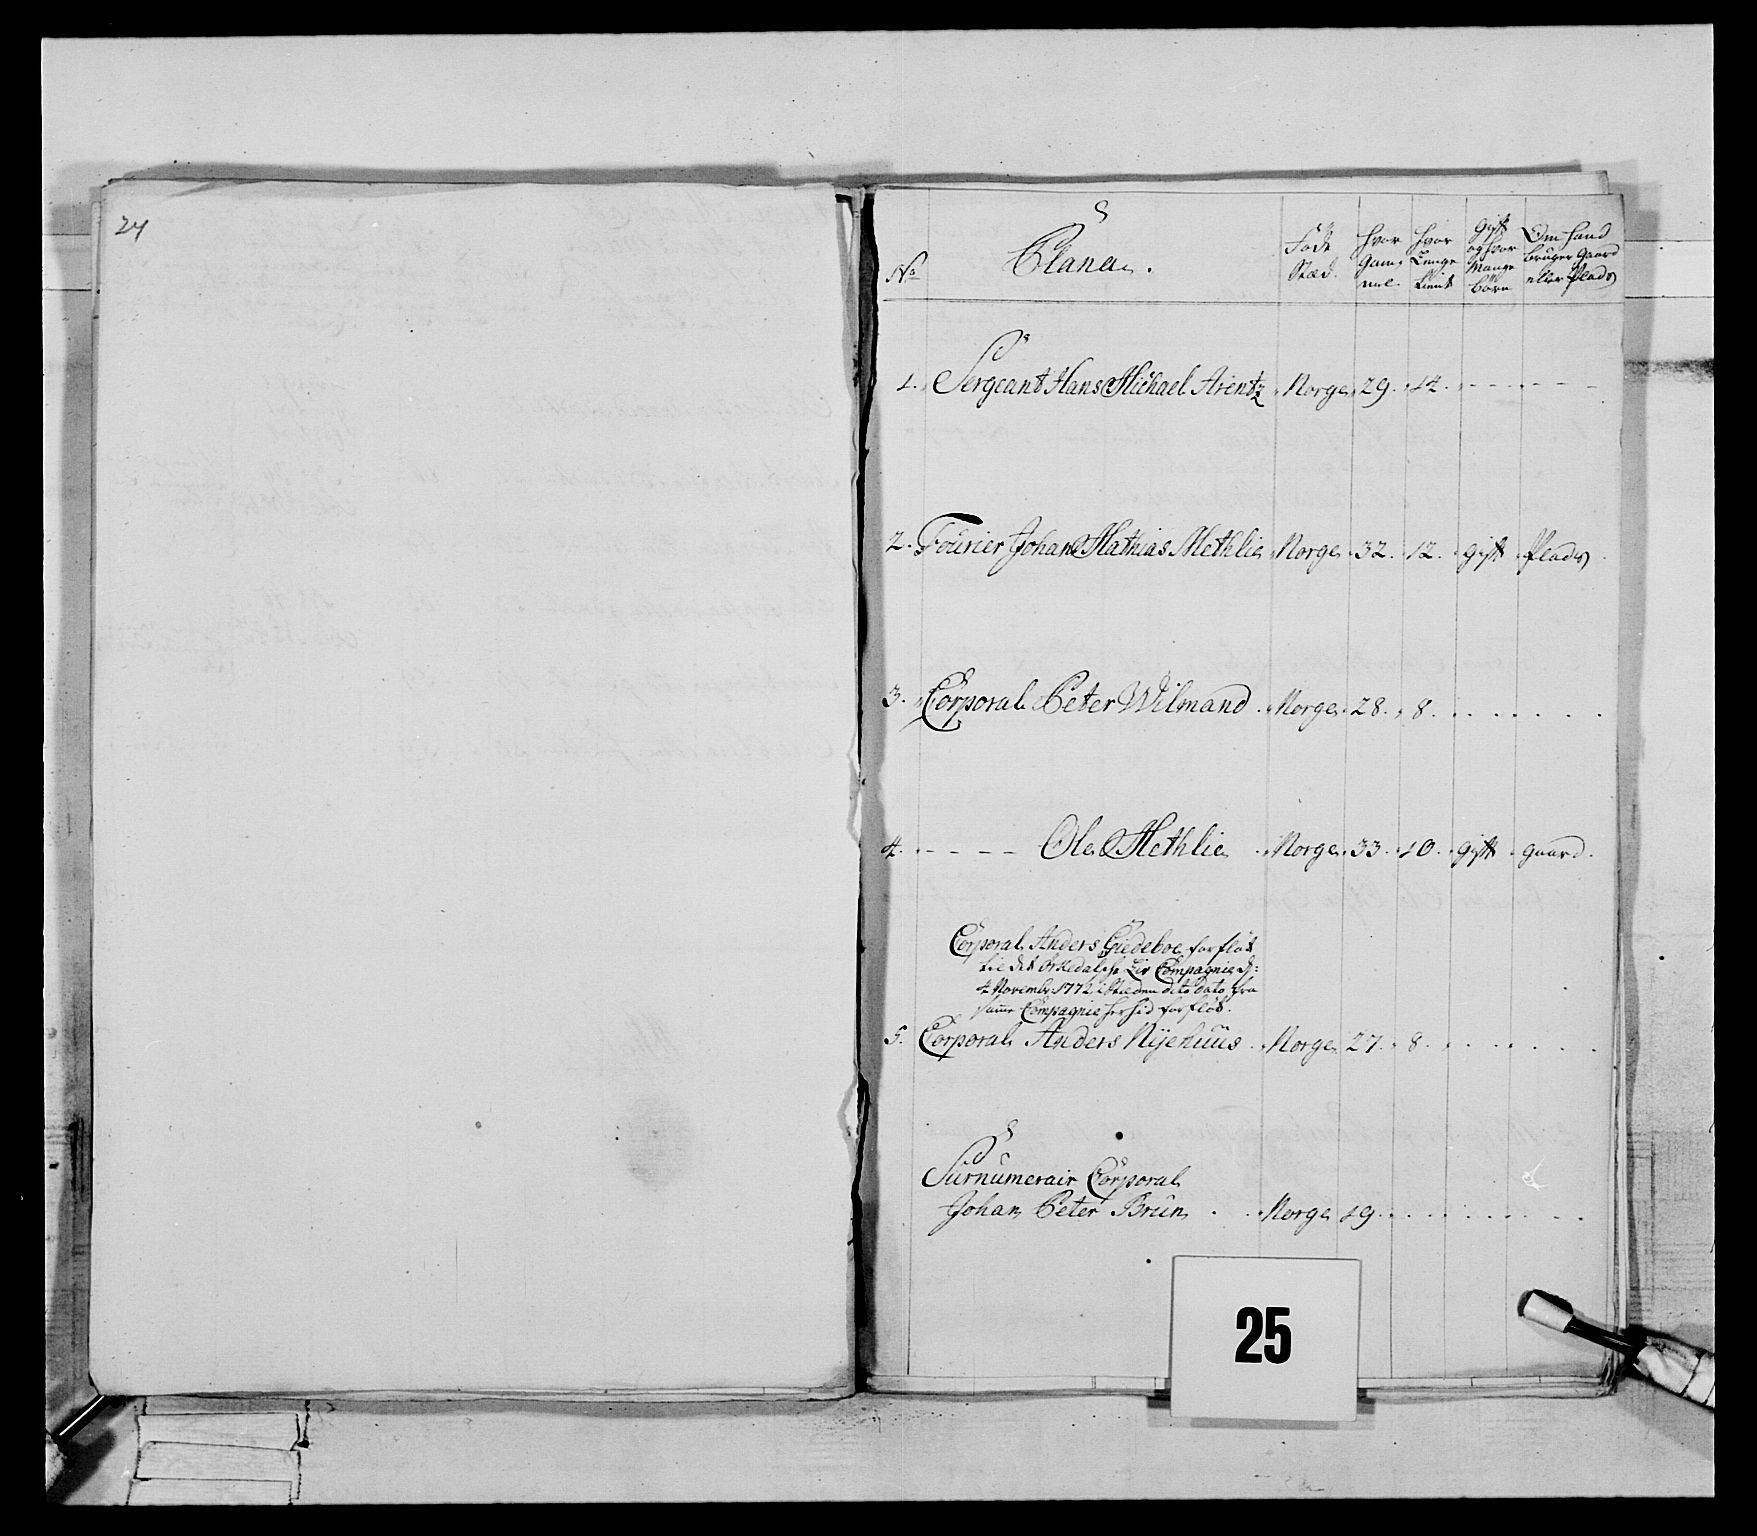 24
No
Plana.
Føde
Stæd.
Hvor
Gam¬
mel.
Hvor
Lenge
tient
Gift
og hvor
Mange
Børn
Om hand
bruger Gaard
eller Plads
1. Sergeant Hans Michael Arentz Norge 29. 14.
2. Fourier Johan Mathias Methlie Norge 32. 12. gift Plads
3. Corporal Peter Wilmand Norge 28. 8.
4. Ole Methlie Norge 33. 10. gift gaard.
Corporal Anders Giedeboe forfløt
til det Orkedalske Liv Compagnie d:
4 Novembr: 1772, i Stæden dito dato fra
samme Compagnie herhid forfløt.
5. Corporal Anders Nyehuus Norge 27. 8.
Surnumerair Corporal
Johan Peter Brun Norge 19.
25